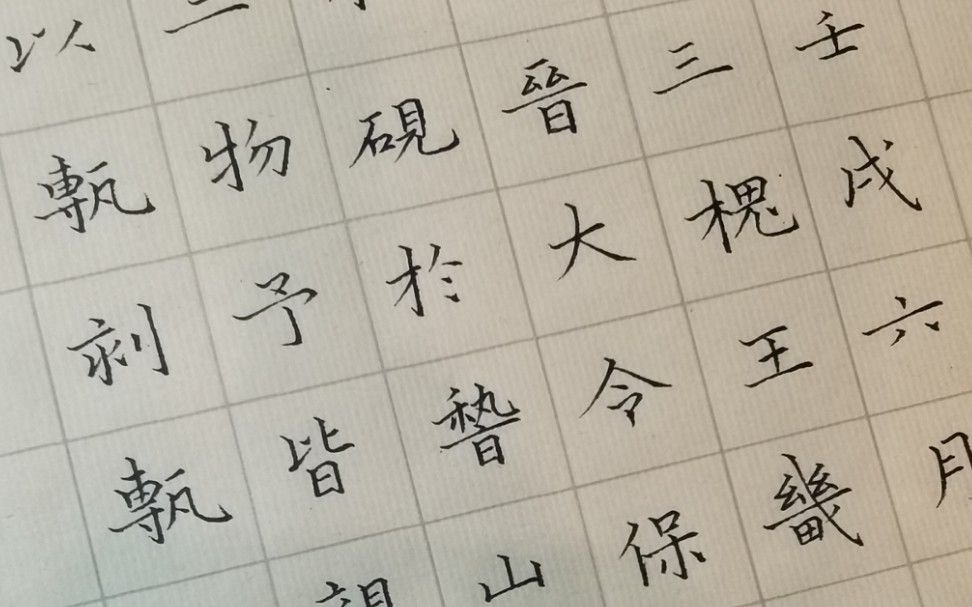 壬戌六月
三槐王畿
晉大令保
硯於稽山
二物予皆親
以甎剥甎